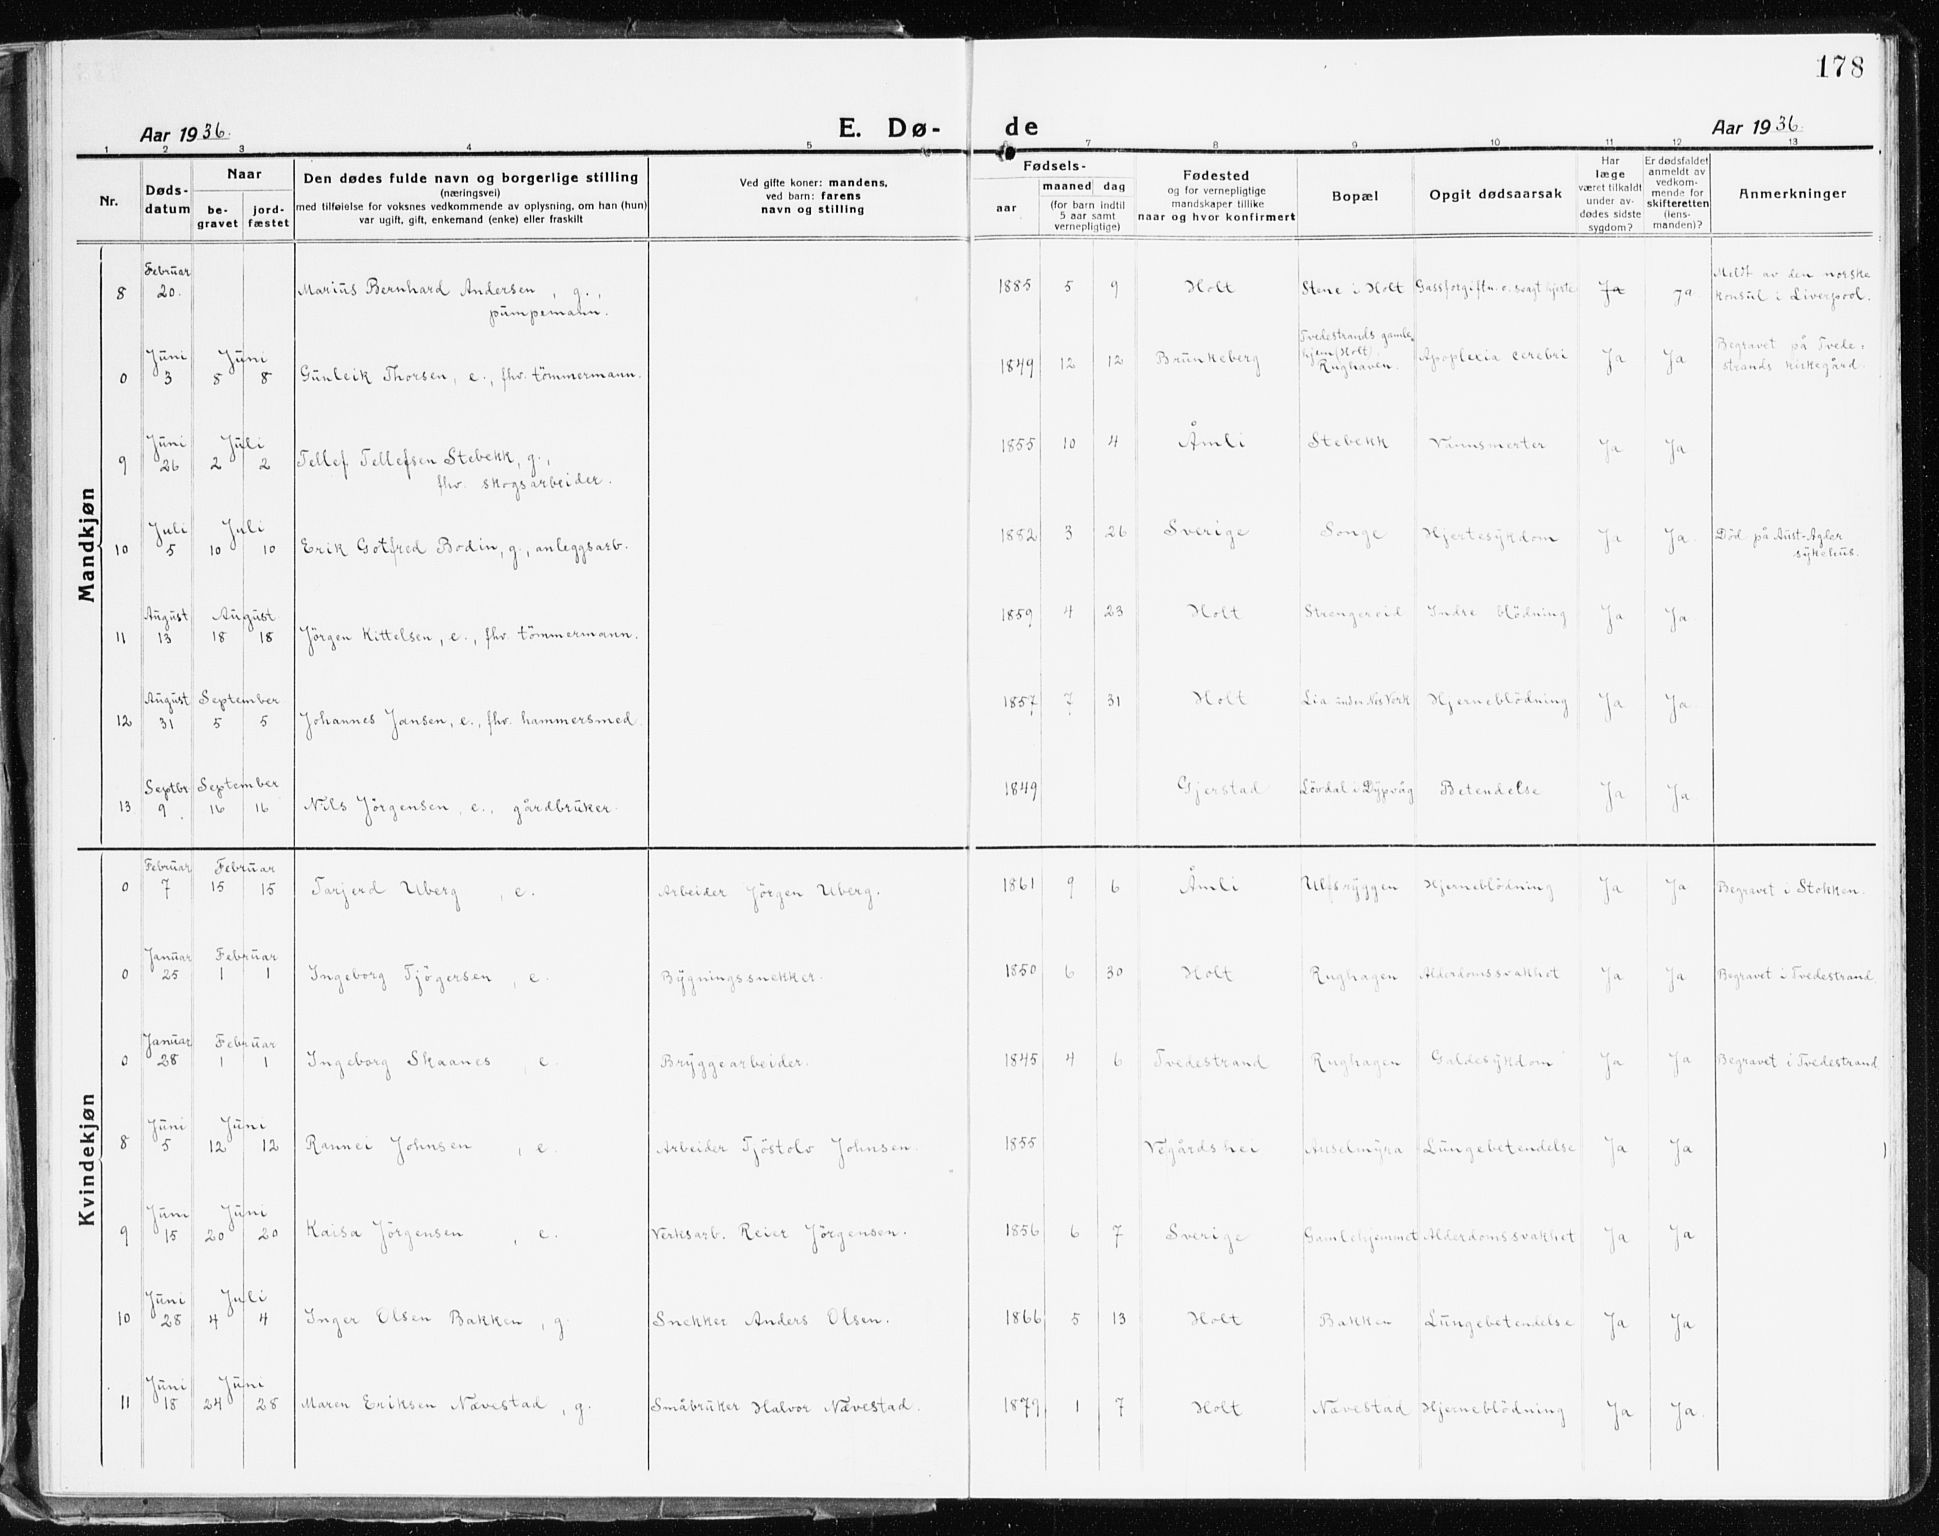 178
Aar 1936. E. Dø- de Aar 1936.
1 2 3 4 5 6 7 8 9 10 11 12 13
Nr. Døds-datum Naar be-gravet jord-fæstet Den dødes fulde navn og borgerlige stilling (næringsvei) med tilføielse for voksnes vedkommende av oplysning, om han (hun) var ugift, gift, enkemand (enke) eller fraskilt Ved gifte koner: mandens, ved barn: farens navn og stilling Fødsels- aar maaned dag (for barn indtil 5 aar samt vernepligtige) Fødested og for vernepligtige mandskaper tillike naar og hvor konfirmert Bopæl Opgit dødsaarsak Har læge været tilkaldt under av-dødes sidste sygdom? Er dødsfaldet anmeldt av vedkom-mende for skifteretten (lens-manden)? Anmerkninger
Mandkjøn
8 Februar 20. Marius Bernhard Andersen, g., pumpemann. 1885 5 9 Holt Stene i Holt Gassforgiftn. o. svagt hjerte Ja Ja Meldt av den norske konsul i Liverpool.
0 Juni 3 Juni 8 8 Gunleik Thorsen, e., fhv. tömmermann. 1849 12 12 Brunkeberg Tvedestrands gamlehjem (Holt). Rughaven. Apoplexia cerebri Ja Ja Begravet på Tvedestrands kirkegård.
9 Juni 26 Juli 2 2 Tellef Tellefsen Stebekk, g., fhv. skogsarbeider. 1855 10 4 Åmli Stebekk Vannsmerter Ja Ja
10 Juli 5 Juli 10 10 Erik Gotfred Bodin, g., anleggsarb. 1882 3 26 Sverige Songe Hjertesykdom Ja Ja. Död på Aust-Agder sykehus.
11 August 13 August 18 18 Jörgen Kittelsen, e., fhv. tömmermann. 1859 4 23 Holt Strengereid Indre blödning Ja Ja.
12 August 31 September 5 5 Johannes Jansen, e., fhv. hammersmed. 1857 7 31 Holt Lia under Nes Verk Hjerneblödning Ja Ja.
13 Septbr. 9 September 16 16 Nils Jörgensen, e., gårdbruker. 1849 Gjerstad Lövdal i Dypvåg Betendelse Ja Ja.
Kvindekjøn
0 Februar 7 Februar 15 15 Tarjerd Uberg, e. Arbeider Jörgen Uberg. 1861 9 6 Åmli Ulfsryggen Hjerneblödning Ja Ja Begravet i Stokken.
0 Januar 25 Februar 1 1 Ingeborg Tjögersen, e. Bygningssnekker. 1850 6 30 Holt Rughagen Alderdomssvakhet Ja Ja Begravet i Tvedestrand.
0 Januar 28 Februar 1 1 Ingeborg Skaanes, e. Bryggearbeider. 1845 4 6 Tvedestrand Rughagen Galdesykdom Ja Ja Begravet i Tvedestrand
8 Juni 5 Juni 12 12 Rannei Johnsen, e. Arbeider Tjöstolv Johnsen. 1855 Vegårdshei Auselmyra Lungebetendelse Ja Ja
9 Juni 15 Juni 20 20 Kaisa Jörgensen, e. Verksarb. Reier Jörgensen. 1856 6 7 Sverige Gamlehjemmet Alderdomssvakhet Ja Ja
10 Juni 28 Juli 4 4 Inger Olsen Bakken, g. Snekker Anders Olsen. 1866 5 13 Holt Bakken Lungebetendelse Ja Ja
11 Juni 18 Juni 24 28 Maren Eriksen Nævestad, g. Småbruker Halvor Nævestad. 1879 1 7 Holt Nævestad Hjerneblödning Ja Ja.